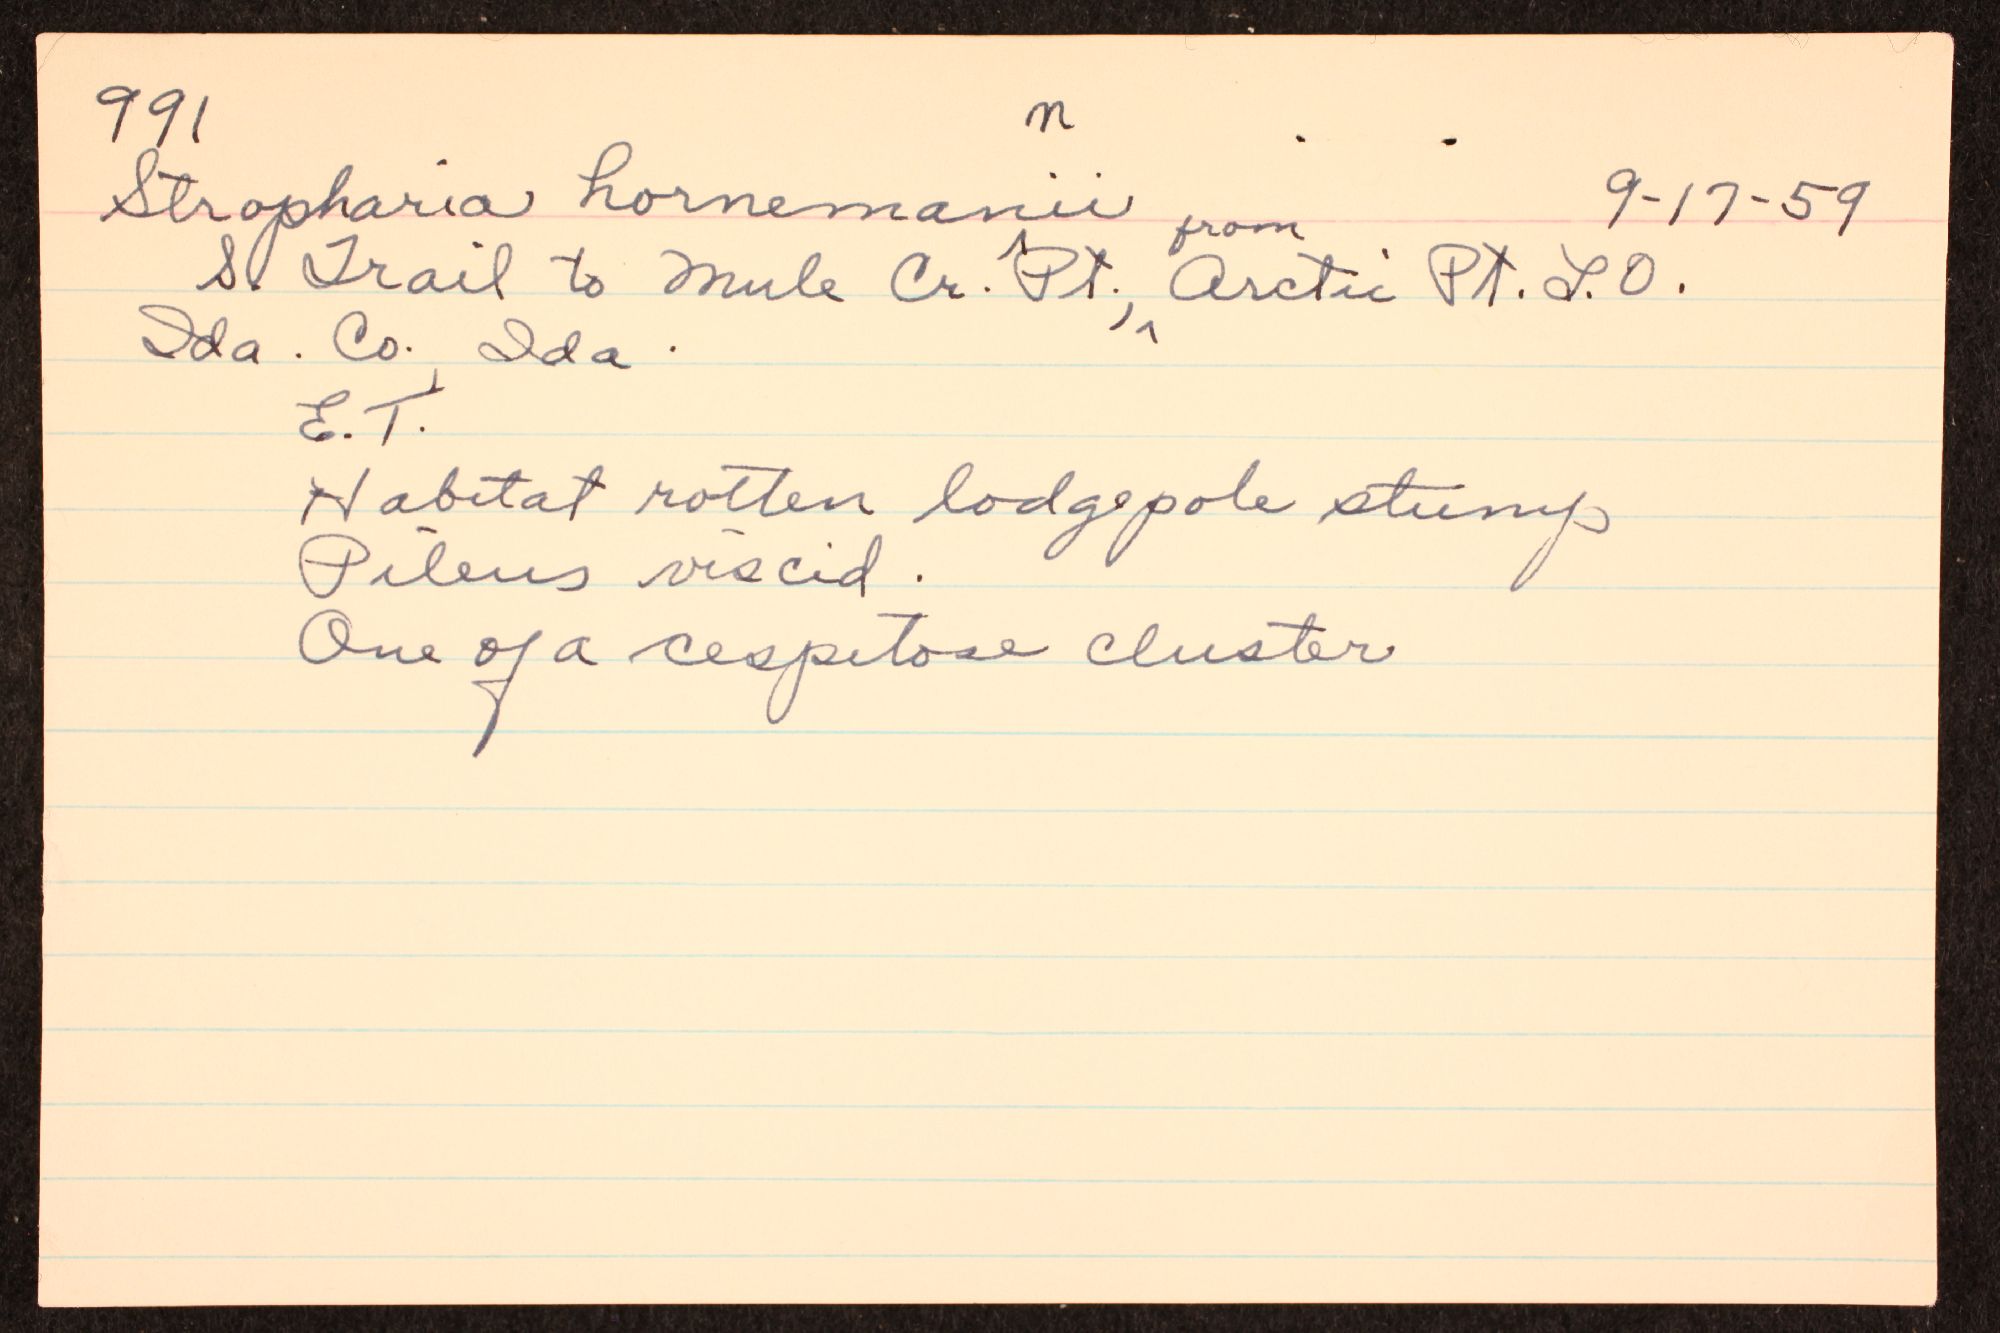 991
Stropharia hornemannii 9-17-59
S. Trail to Mule Cr. Pt., from Arctic Pt. L.O.
Ida. Co., Ida.
E.T.
Habitat rotten lodgepole stump
Pileus viscid.
One of a cespitose cluster